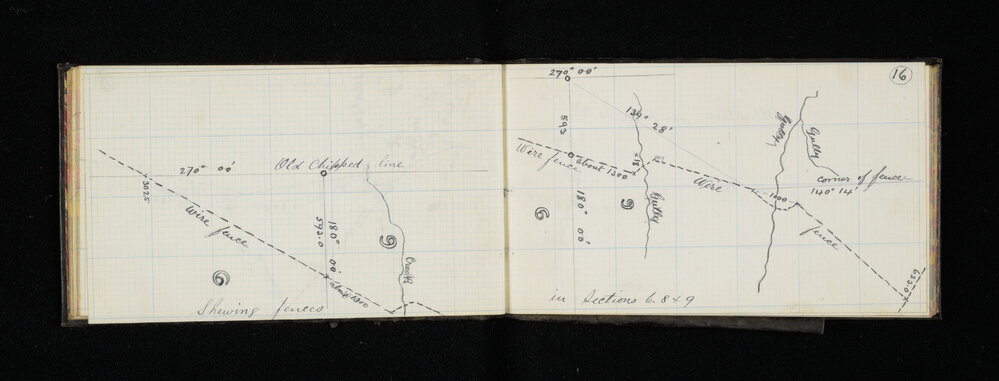 270° 00'
Old Chipped line
3025
Wire fence
180° 00'
593.0
9
Creek
6
about 1300
Shewing fences
16
270° 00'
593
139° 28'
Gully
Gully
Wire fence
about 1300
Wire
corner of fence
140° 14'
1000
6
180° 00'
9
Gully
fence
633.0
in Sections 6. 8 & 9